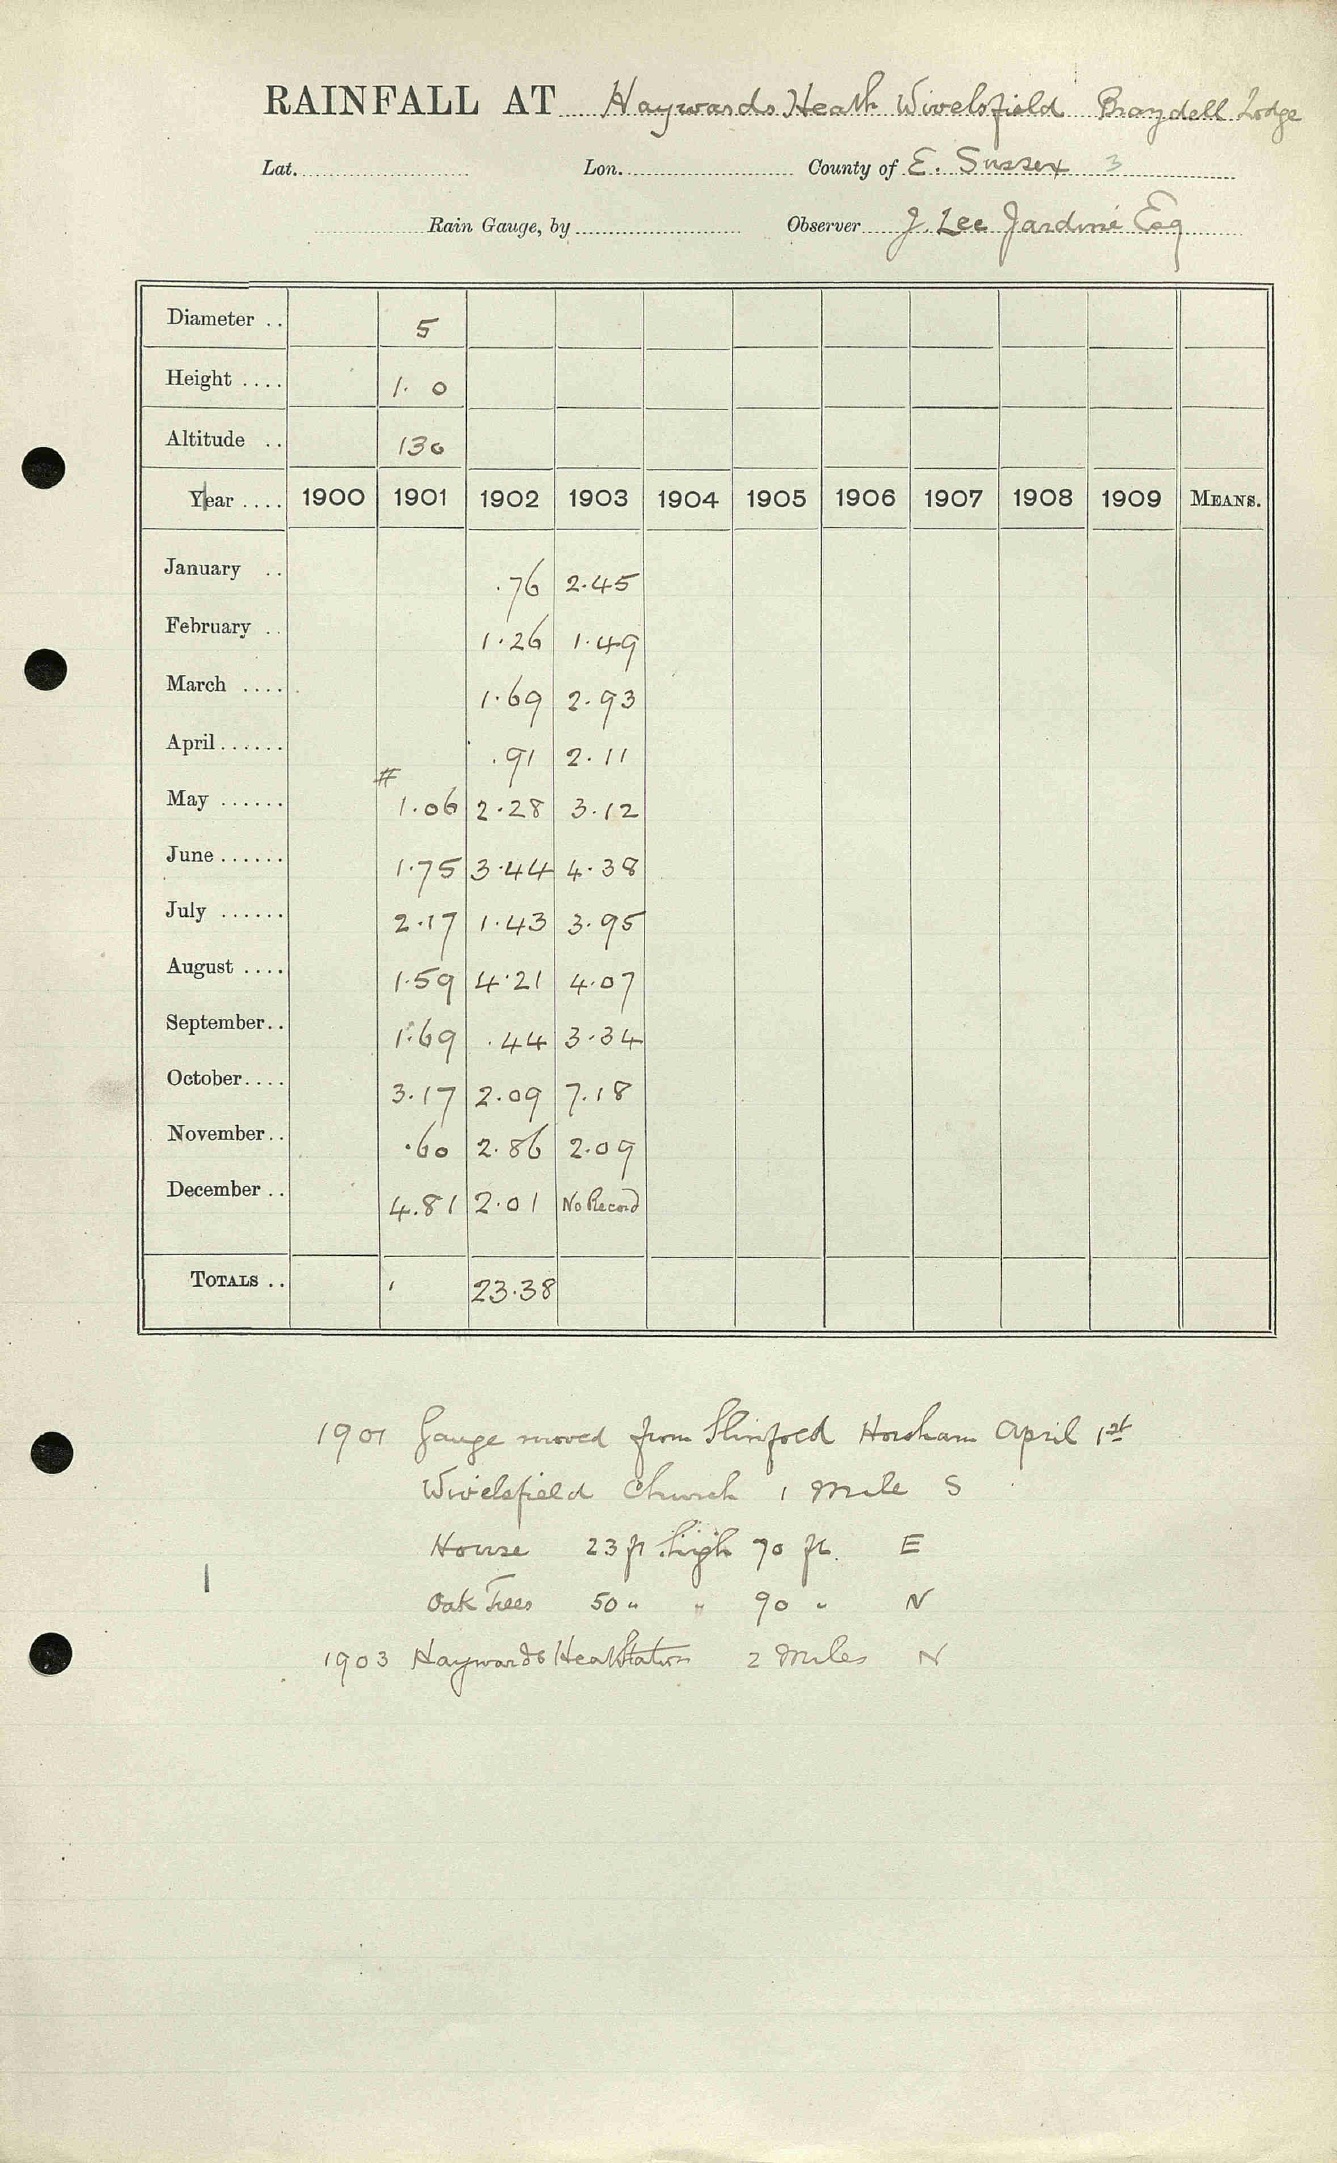 RAINFALL AT Haywards Heath Wivelsfield Lodge
Lat. Lon. County of E. Sussex 3
Rain Gauge, by Observer J. Lee Jardine Esq
Diameter .. 5
Height .... 1. 0
Altitude .. 130
Year .... 1900 1901 1902 1903 1904 1905 1906 1907 1908 1909 MEANS.
January .. .76 2.45
February .. 1.26 1.49
March .... 1.69 2.93
April...... .91 2.11
#
May ...... 1.06 2.28 3.12
June...... 1.75 3.44 4.38
July ...... 2.17 1.43 3.95
August .... 1.59 4.21 4.07
September.. 1.69 .44 3.34
October.... 3.17 2.09 7.18
November.. .60 2.86 2.09
December .. 4.81 2.01 No Record
TOTALS .. 23.38
1901 Gauge moved from Slinfold Horsham April 1st
Wivelsfield Church 1 Mile S
House 23 ft high 70 ft. E
Oak Trees 50 " " 90 " N
1903 Haywards Heath Station 2 Miles N